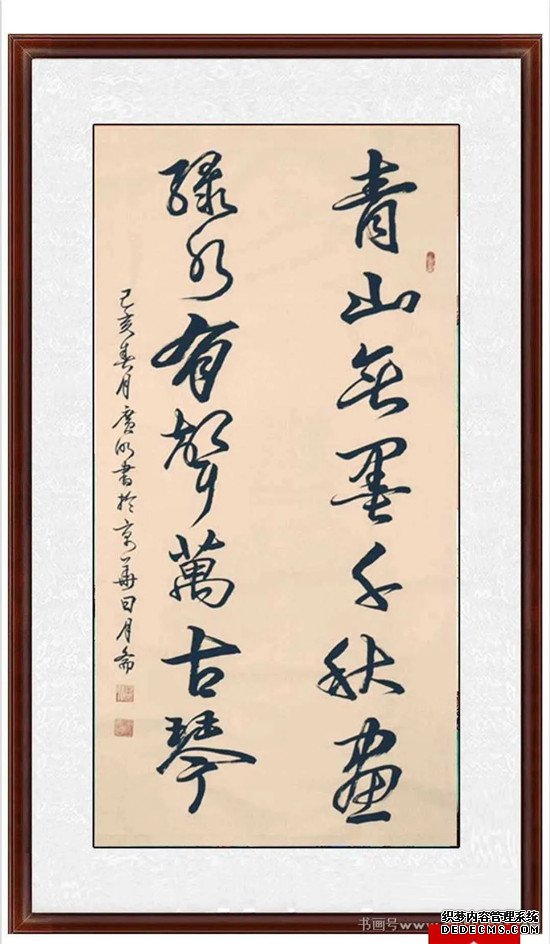 青山無墨千秋画
綠水有聲萬古琴
己亥春月廣明書於京華日月斋
书画号www.
织梦内容管理系统
DEDECMS.COM